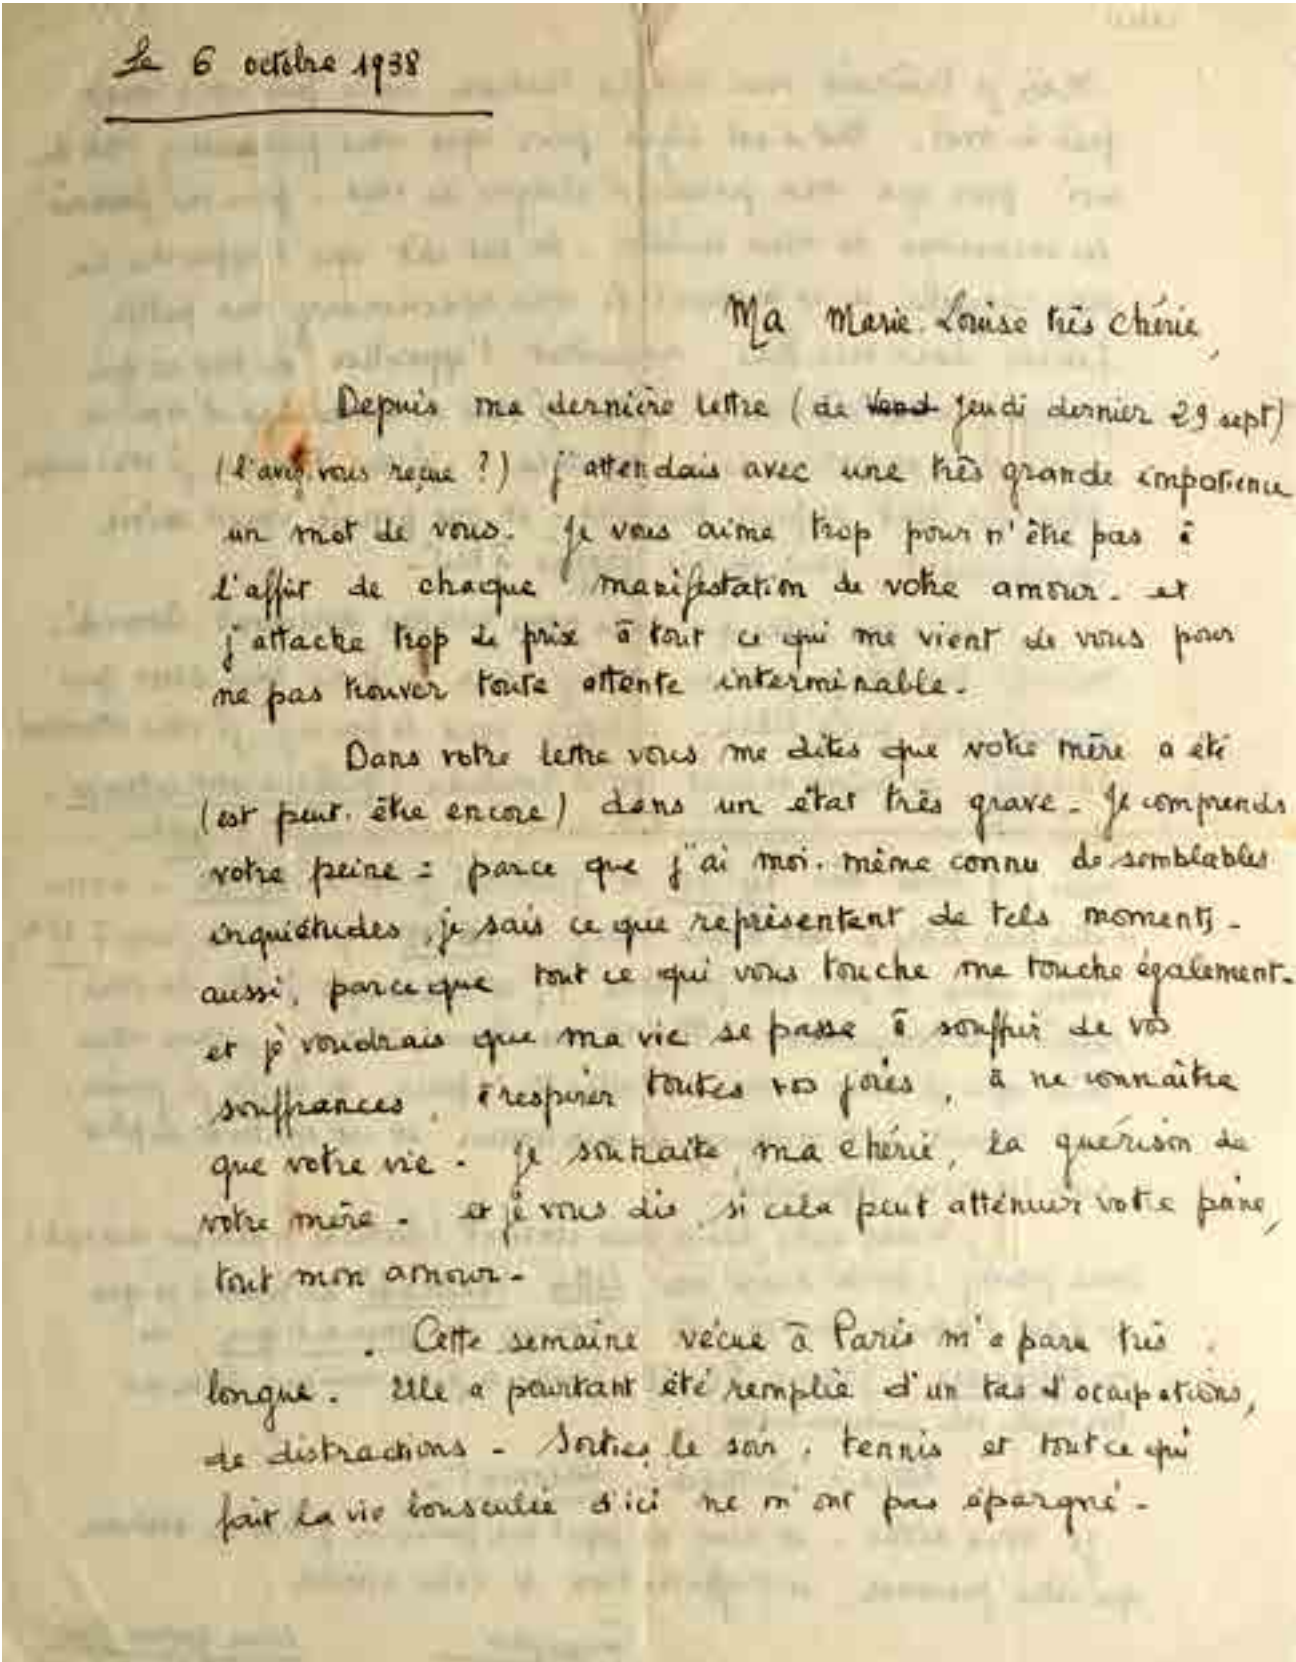 Le 6 octobre 1938
Ma Marie-Louise très chérie,
Depuis ma dernière lettre (de jeudi dernier 29 sept)
(l'avez-vous reçue ?) j'attendais avec une très grande impatience
un mot de vous. Je vous aime trop pour n'être pas à
l'affût de chaque manifestation de votre amour - et
j'attache trop de prix à tout ce qui me vient de vous pour
ne pas trouver toute attente interminable.
Dans votre lettre vous me dites que votre mère a été
(est peut-être encore) dans un état très grave - Je comprends
votre peine : parce que j'ai moi-même connu de semblables
inquiétudes, je sais ce que représentent de tels moments -
aussi, parce que tout ce qui vous touche me touche également -
et je voudrais que ma vie se passe à souffrir de vos
souffrances, à respirer toutes vos joies, à ne connaître
que votre vie - Je souhaite, ma chérie, la guérison de
votre mère - et je vous dis, si cela peut atténuer votre peine,
tout mon amour -
Cette semaine vécue à Paris m'a paru très
longue. Elle a pourtant été remplie d'un tas d'occupations,
de distractions - Sorties le soir, tennis et tout ce qui
fait la vie bousculée d'ici ne m'ont pas épargné -